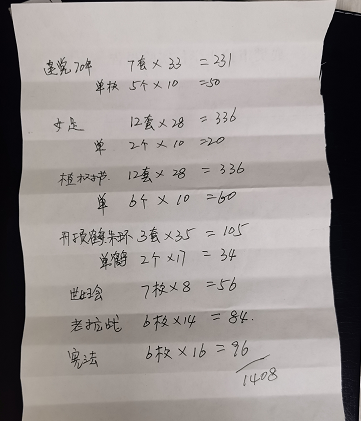 建党70年 7套×33 =231
单枚 5个×10 =50
女足 12套×28 =336
单 2个×10 =20
植树节 12套×28 =336
单 6个×10 =60
丹顶鹤朱环 3套×35 =105
单鹤 2个×17 = 34
世妇会 7枚×8 =56
老挝 6枚×14 = 84.
宪法 6枚×16 =96
1408